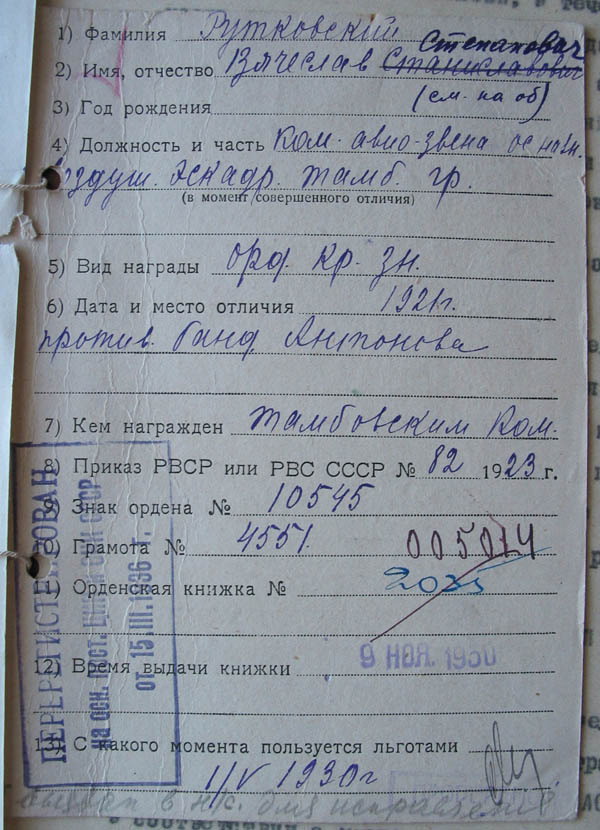 1) Фамилия Рутковский
Степанович
2) Имя, отчество Вячеслав Станиславович
(см. на об)
3) Год рождения
4) Должность и часть Ком. авио-звена
воздуш. Эскадр. Тамб. гр.
(в момент совершенного отличия)
5) Вид награды орд. Кр. Зн.
6) Дата и место отличия 1921г.
против банд Антонова
7) Кем награжден Тамбовским Ком.
8) Приказ РВСР или РВС СССР № 82 1923 г.
9) Знак ордена № 10545
10) Грамота № 4551.
005074
11) Орденская книжка №
12) Время выдачи книжки 9 НОЯ. 1930
13) С какого момента пользуется льготами
1/V 1930г
ПЕРЕРЕГИСТРИРОВАН
на осн. пост. ЦИК и СНК СССР
от 15.III.1936 г.